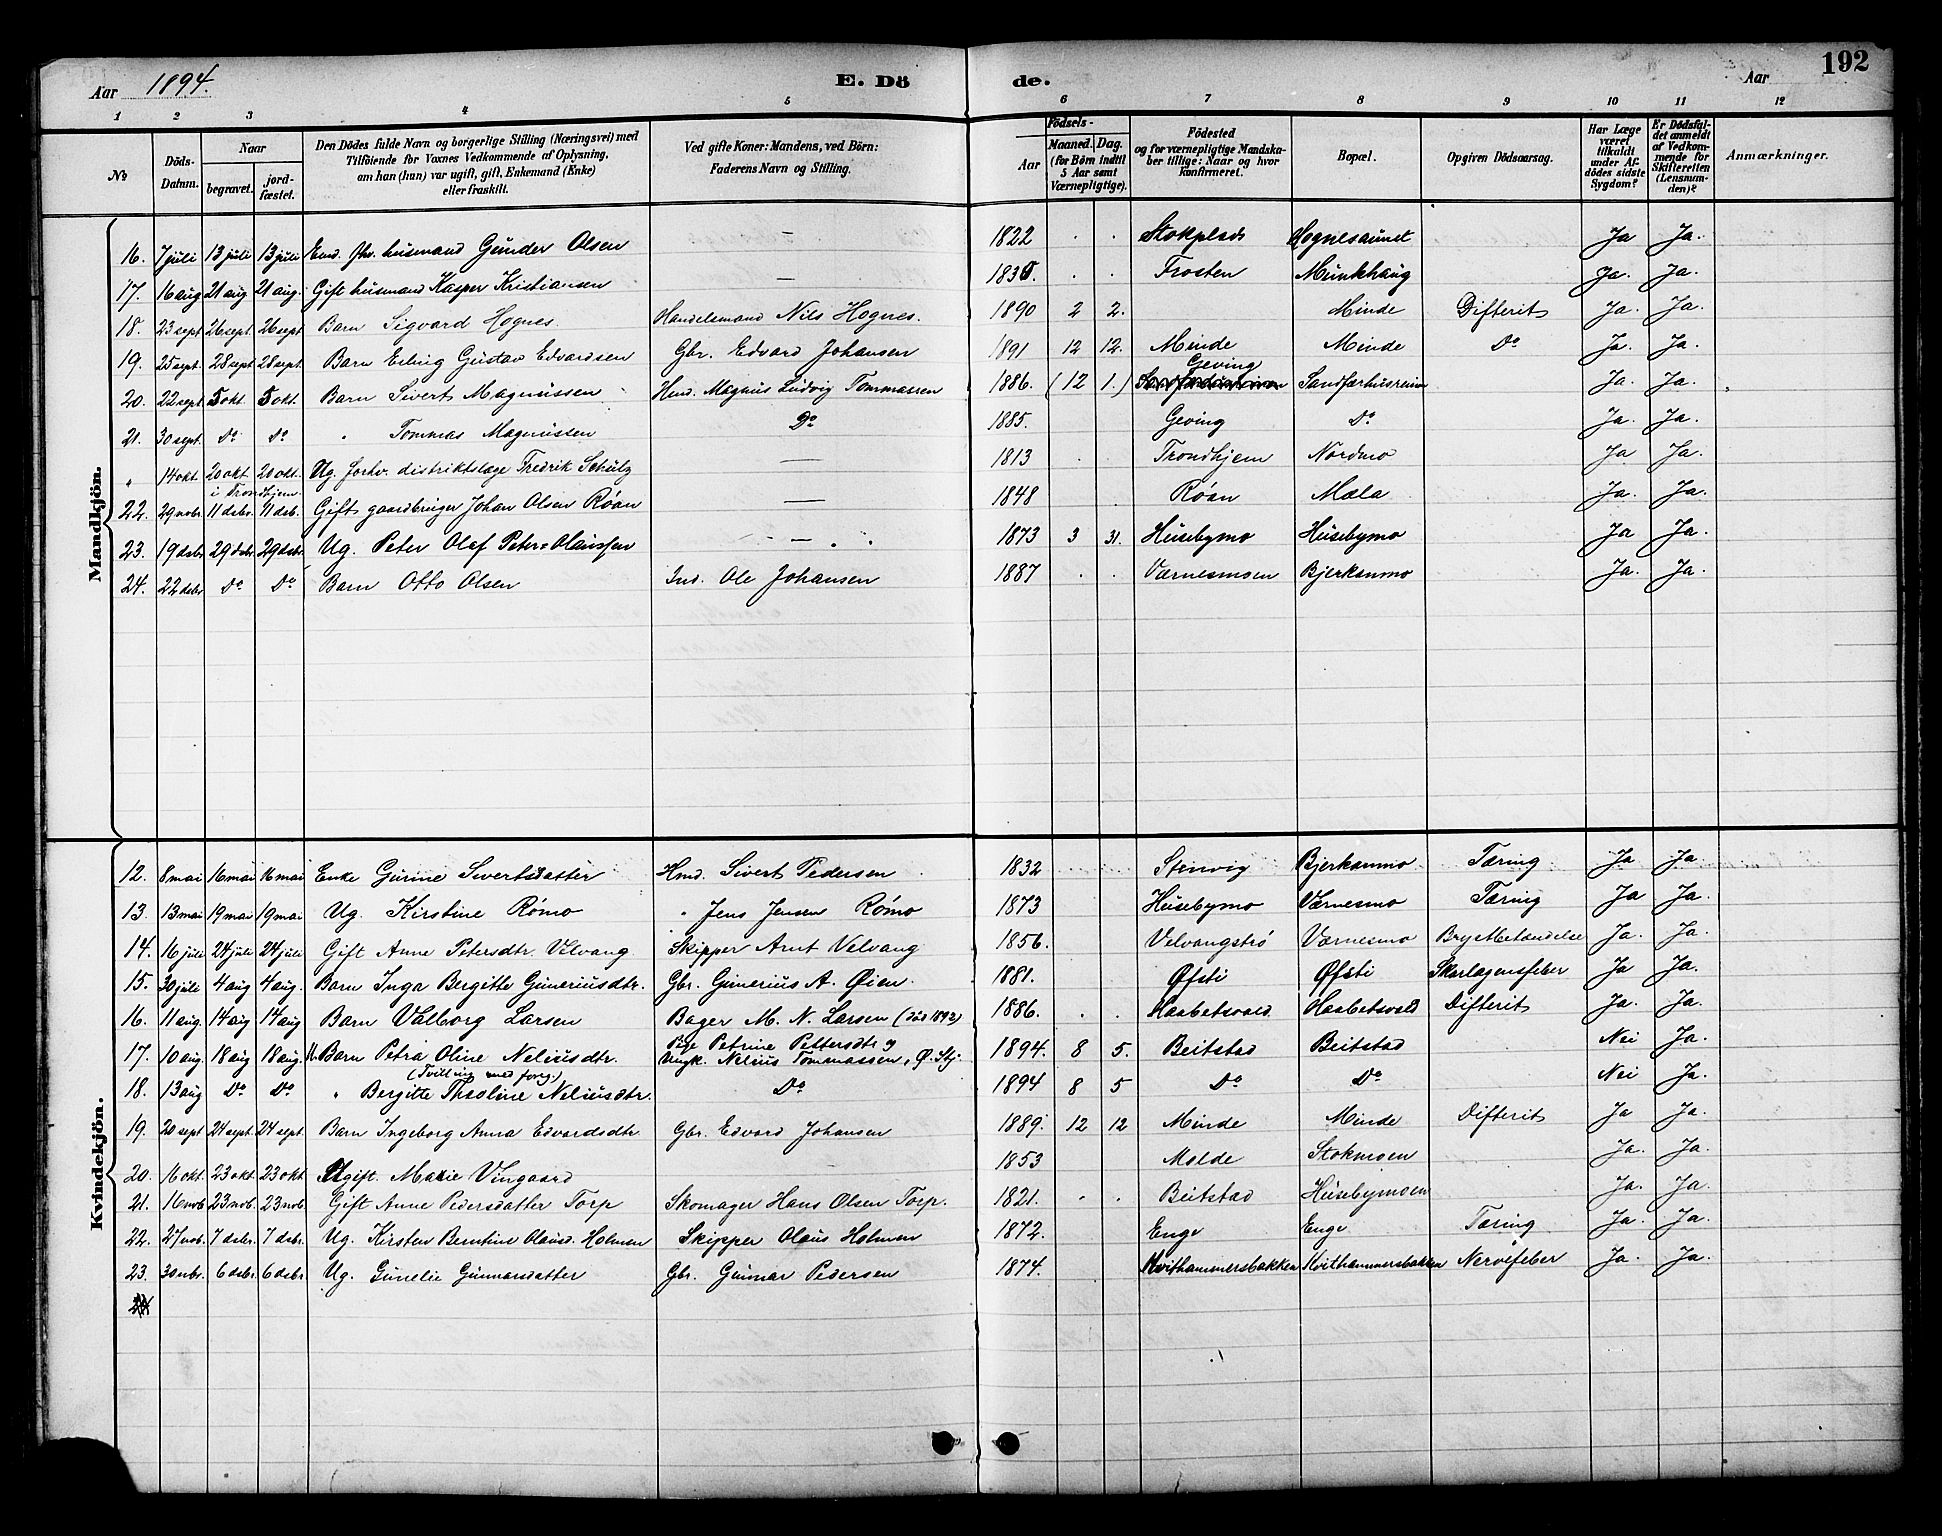 Aar 1894. E. Dö de. Aar 192
1 2 3 4 5 6 7 8 9 10 11 12
No Döds-Datum. Naar begravet. jord-fæstet. Den Dödes fulde Navn og borgerlige Stilling (Næringsvei) med Tilföiende for Voxnes Vedkommende af Oplysning, om han (hun) var ugift, gift, Enkemand (Enke) eller fraskilt. Ved gifte Koner: Mandens, ved Börn: Faderens Navn og Stilling. Födsels- Aar Maaned. Dag. (for Börn indtil 5 Aar samt Værnepligtige). Födested og for værnepligtige Mandska-ber tillige: Naar og hvor konfirmeret. Bopæl. Opgiven Dödsaarsag. Har Læge været tilkaldt under Af-dödes sidste Sygdom? Er Dödsfal-det anmeldt af Vedkom-mende for Skifteretten (Lensman-den)? Anmærkninger.
Mandkjön.
16. 7 juli 13 juli 13 juli Emd. fhv. husmand Gunder Olsen — 1822 . . Stokplads Hognesaunet Ja Ja.
17. 16 aug 21 aug 21 aug. Gift husmand Kasper Kristiansen — 1835. . . Frosten Munkhaug Ja. Ja.
18. 23 sept 26 sept 26 sept Barn Sigvard Hognes. Handelsmand Nils Hognes. 1890 2 2. Minde Difterit Ja. Ja.
19. 25 sept. 28 sept 28 sept. Barn Erling Gustav Edvardsen Gbr. Edvard Johansen 1891 12 12. Minde Minde Do Ja. Ja.
20. 22 sept 5 okt. 5 okt. Barn Sivert Magnussen Hmd. Magnus Ludvig Tommassen 1886. (12 1.) Geving Sandfærhusreim Ja. Ja.
21. 30 sept. Do Do " Tommas Magnussen Do 1885. Geving Do Ja. Ja.
" 14 okt. 20 okt 20 okt. i Trondhjem Ug. forhv. distriktslæge Fredrik Schulz — 1813 Trondhjem Nordmo Ja Ja.
22. 29 nobr. 11 dsbr. 11 dsb. Gift gaardbruger Johan Olsen Røan — 1848 Røan Mæla Ja. Ja.
23. 19 dsbr 29 dsbr. 29 dsbr. Ug. Peter Olaf Peter=Olaussen — 1873 3 31. Husebymo Husebymo Ja Ja.
24. 22 dsbr Do Do Barn Otto Olsen Ind. Ole Johansen 1887 . . Værnesmoen Bjerkanmo Ja. Ja.
Kvindekjön.
12. 8 mai 16 mai 16 mai Enke Gurine Sivertsdatter Hmd. Sivert Pedersen 1832 Stenvig Bjerkanmo Tæring Ja Ja
13. 13 mai 19 mai 19 mai Ug. Kirstine Rømo " Jens Jensen Rømo 1873 Husebymo Værnesmo Tæring Ja Ja.
14. 16 juli 24 juli 24 juli Gift Anne Petersdtr. Velvang Skipper Arnt Velvang 1856. Velvangstrø Værnesmo Brystbetændelse Ja. Ja.
15. 30 juli 4 aug 4 aug. Barn Inga Bergitte Guneriusdtr. Gbr. Gunerius A. Øien. 1881. Øfsti Øfsti Skarlagensfeber Ja Ja.
16. 11 aug. 14 aug 14 aug Barn Valborg Larsen Bager M. N. Larsen (død 1892) 1886. . . Haabetsvald Haabetsvald Difterit Ja. Ja.
17. 10 aug. 18 aug 18 aug. Barn Petra Oline Neliusdtr. Pige Petrine Pettersdtr og Ungk. Nelius Tommassen, Ø. Stj. 1894. 8 5. Beitstad Beitstad Nei Ja.
18. 13 aug Do Do (Tvilling med foreg.) " Bergitte Theoline Neliusdtr. Do 1894 8 5 Do Do Nei Ja.
19. 20 sept 24 sept. 24 sept Barn Ingeborg Anna Edvardsdtr. Gbr. Edvard Johansen 1889. 12 12 Minde Minde Difterit Ja Ja.
20. 16 okt. 23 okt. 23 okt. Ugift. Marie Vingaard 1853 Molde Stokmoen Ja. Ja.
21. 16 nob 23 nob. 23 nob. Gift Anne Pedersdatter Torp Skomager Hans Olsen Torp. 1821. . . Beitstad Husebymoen Ja. Ja.
22. 27 nob. 7 dsbr. 7 dsbr. Ug. Kirsten Berntine Olausd. Holmen Skipper Olaus Holmen 1872. Enge Enge Tæring Ja. Ja.
23. 30 nbr. 6 dsbr. 6 dsbr Ug. Gunelie Gunnarsdatter Gbr. Gunnar Pedersen 1874. Kvithammersbakken Kvithammersbakken Nervefeber Ja. Ja.